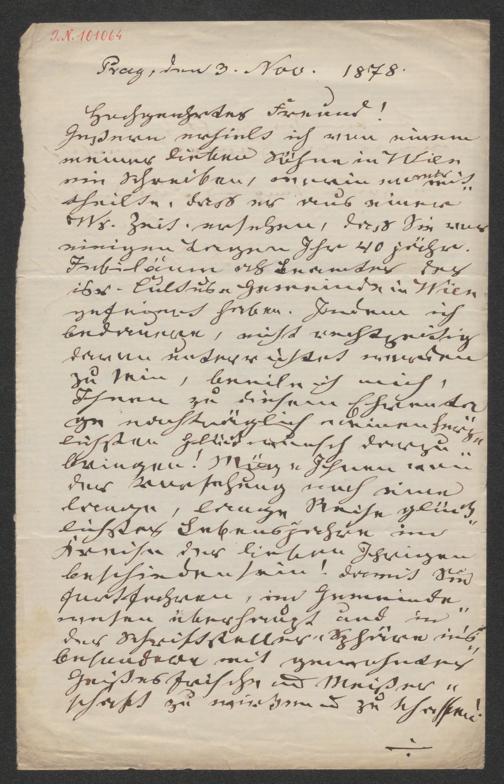 I.N. 101064
Prag, den 3. Nov. 1878.
Hochgeehrter Freund!
Gestern erhielt ich von einem
meiner lieben Söhne in Wien
ein Schreiben, worin er mir mit„
theilte, dass er aus einer
Wr. Zeit. ersehen, dass Sie vor
einigen Tagen Ihr 40 jähr.
Jubiläum als Beamter der
isr. Cultus-Gemeinde in Wien
gefeiert haben. Indem ich
bedauere, nicht rechtzeitig
davon unterrichtet worden
zu sein, beeile ich mich,
Ihnen zu diesem Ehrenta„
ge nachträglich meinen herz„
lichsten Glückwunsch darzu„
bringen! Möge Ihnen von
der Vorsehung noch eine
lange, lange Reihe glück„
lichster Lebensjahre im
Kreise der lieben Ihrigen
beschieden sein! damit Sie
fortfahren, im Gemeinde„
wesen überhaupt und in
der Schriftsteller-Sphäre ins„
besondere mit gewohnter
Geistesfrische und Meister„
schaft zu wirken und zu schaffen!